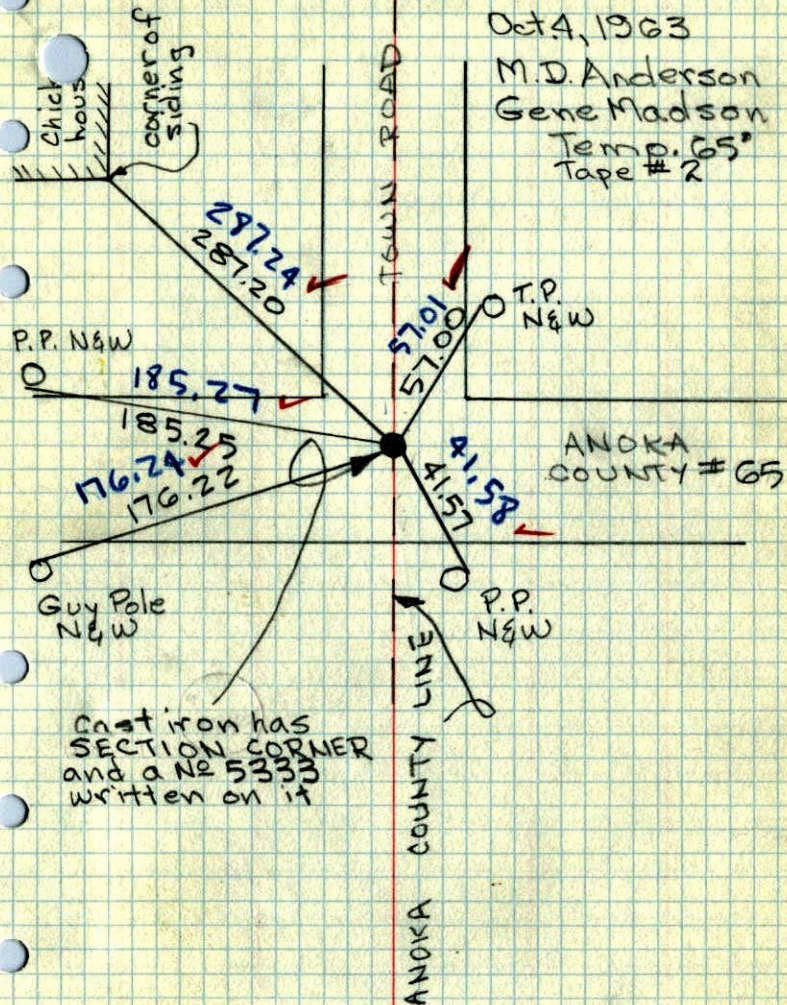 Oct. 4, 1963
M.D. Anderson
Gene Madson
Temp. 65°
Tape # 2
corner of
siding
TOWN ROAD
287.24
287.20
57.01
57.00
T.P.
N&W
P.P. N&W
185.27
185.25
176.24
176.22
41.58
41.57
ANOKA
COUNTY # 65
Guy Pole
N&W
P.P.
N&W
cast iron has
SECTION CORNER
and a No 5333
written on it
ANOKA COUNTY LINE